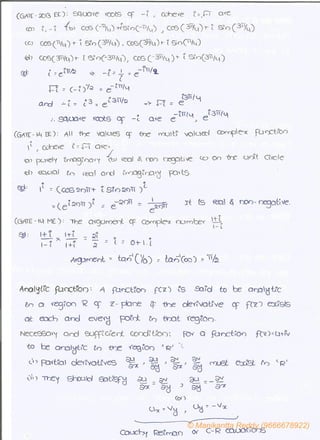 (GATE-2013 EE): Square roots of -i, where i=√-1 are
(a) i, -i (b) cos(-π/4)+i sin(-π/4), cos(3π/4)+i sin(3π/4)
(c) cos(π/4)+i sin(3π/4), cos(3π/4)+i sin(π/4)
(d) cos(3π/4)+i sin(-3π/4), cos(-3π/4)+i sin(3π/4)
Sol: i = e^iπ/2 ⇒ -i = 1/i = e^-iπ/2
√-i = (-i)^1/2 = e^-iπ/4
and -i = i³ = e^i3π/2 ⇒ √-i = e^i3π/4
∴ Square roots of -i are e^-iπ/4, e^i3π/4
(GATE-14 EE): All the values of the multi valued complex function
1^i, where i=√-1 are,
(a) purely imaginary (b) real & non negative (c) on the unit circle
(d) equal in real and imaginary parts.
Sol: 1^i = (cos 2nπ + i sin 2nπ)^i
= (e^i2nπ)^i = e^-2nπ = 1/e^2nπ It is real & non-negative.
(GATE-14 ME): The argument of complex number 1+i/1-i
Sol: 1+i/1-i × 1+i/1+i = 2i/2 = i = 0+1.i
Argument = tan⁻¹(1/0) = tan⁻¹(∞) = π/2
Analytic function: A function f(z) is said to be analytic
in a region R of z-plane if the derivative of f(z) exists
at each and every point in that region.
Necessary and sufficient condition: For a function f(z)=u+iv
to be analytic in the region 'R'
i) Partial derivatives ∂u/∂x, ∂u/∂y, ∂v/∂x, ∂v/∂y must exist in 'R'
ii) They should satisfy ∂u/∂x = ∂v/∂y, ∂u/∂y = -∂v/∂x
(or)
Ux = Vy, Uy = -Vx
Cauchy Reiman or C-R equations
© Manikantta Reddy (9666678922)